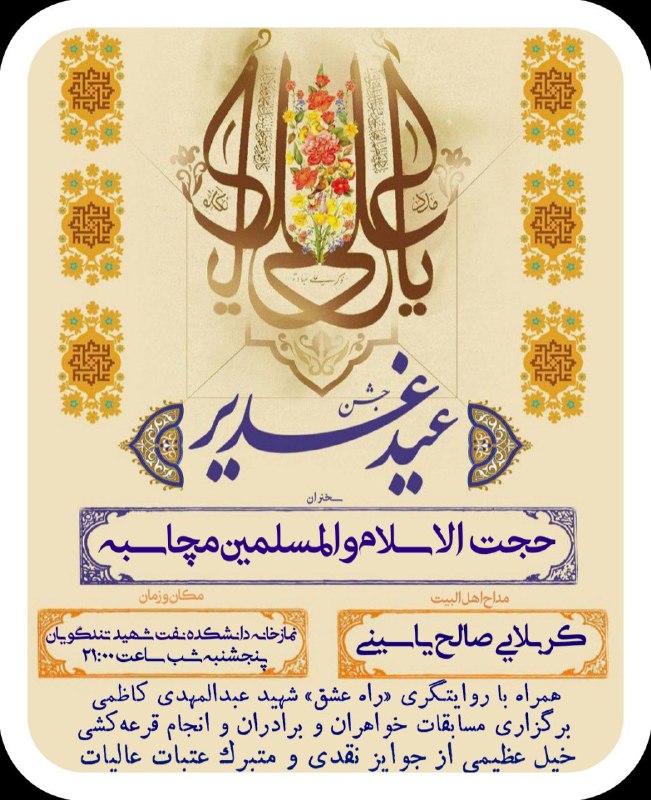 یا علی
مدد
جشن
عید غدیر
سخنران
حجت الاسلام والمسلمین مچاسبه
مداح اهل البیت
کربلایی صالح یاسینی
مکان و زمان
نمازخانه دانشکده نفت شهید تندگویان
پنجشنبه شب ساعت ۲۱:۰۰
همراه با روایتگری «راه عشق» شهید عبدالمهدی کاظمی
برگزاری مسابقات خواهران و برادران و انجام قرعه‌کشی
خیل عظیمی از جوایز نقدی و متبرک عتبات عالیات